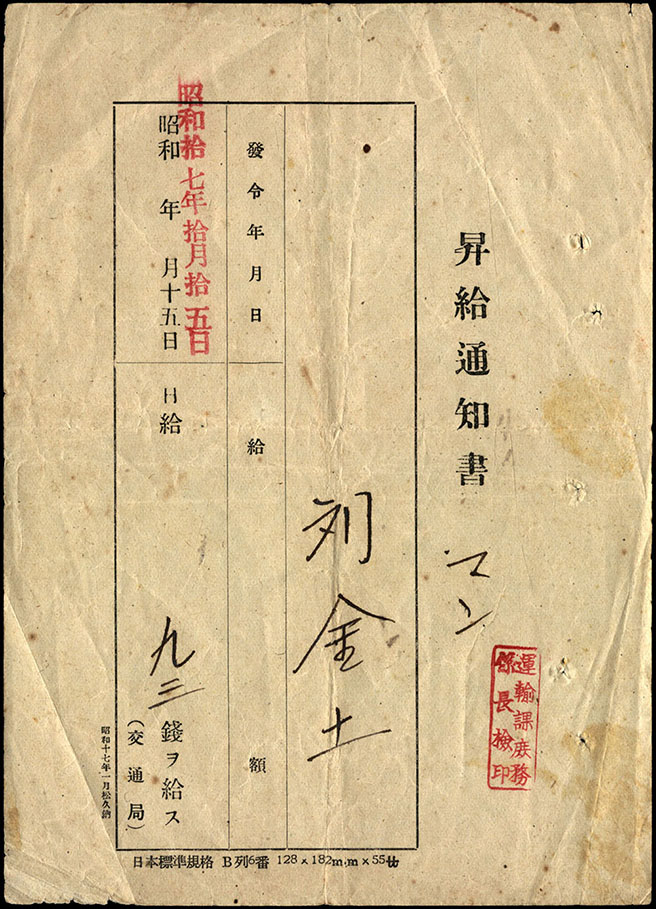 昇給通知書
マン
運輸課庶務
係長檢印
列金土
發令年月日
給額
昭和拾七年拾月拾五日
昭和 年 月十五日
日給 九三 錢ヲ給ス
(交通局)
昭和十七年一月松久納
日本標準規格 B列6番 128×182m.m×55